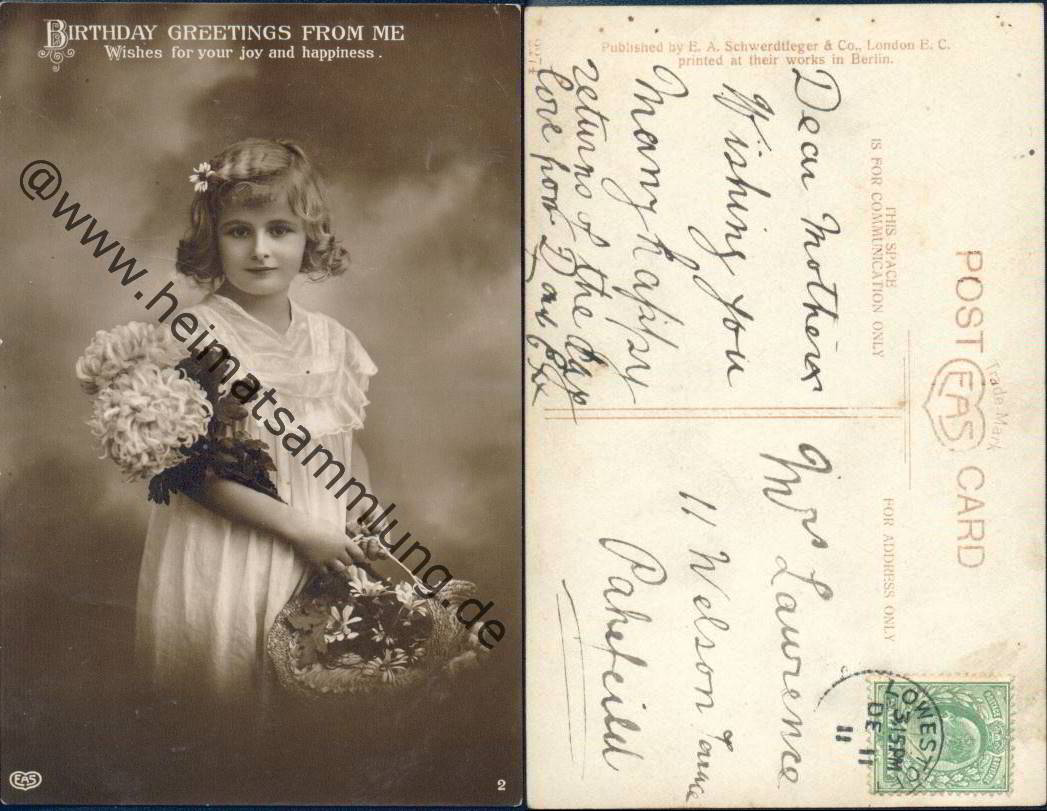 BIRTHDAY GREETINGS FROM ME
Wishes for your joy and happiness.
@www.heimatsammlung.de
EAS
2
Published by E. A. Schwerdtfeger & Co., London E. C.
printed at their works in Berlin.
POST CARD
Trade Mark
EAS
THIS SPACE
IS FOR COMMUNICATION ONLY
FOR ADDRESS ONLY
Dear Mother
Wishing you
Many happy
returns of the day
love from
Mrs Lawrence
11 Nelson Terrace
Pakefeild
LOWESTO
3 15PM
DE 11
11